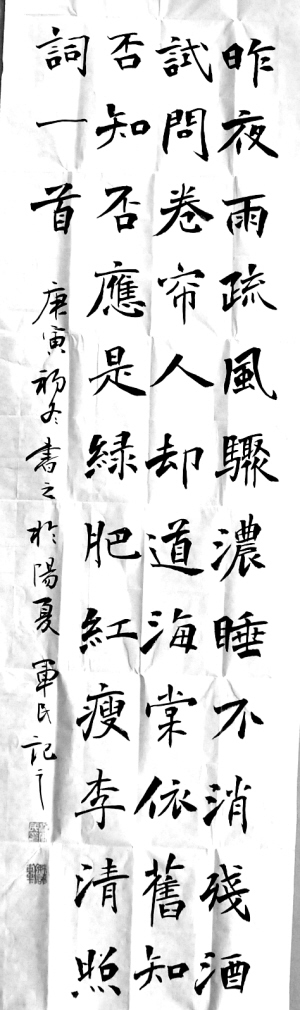 昨夜雨疏風驟濃睡不消殘酒
試問卷帘人却道海棠依舊知
否知否應是緑肥紅瘦李清照
詞一首
庚寅初冬書之於陽夏軍民記之